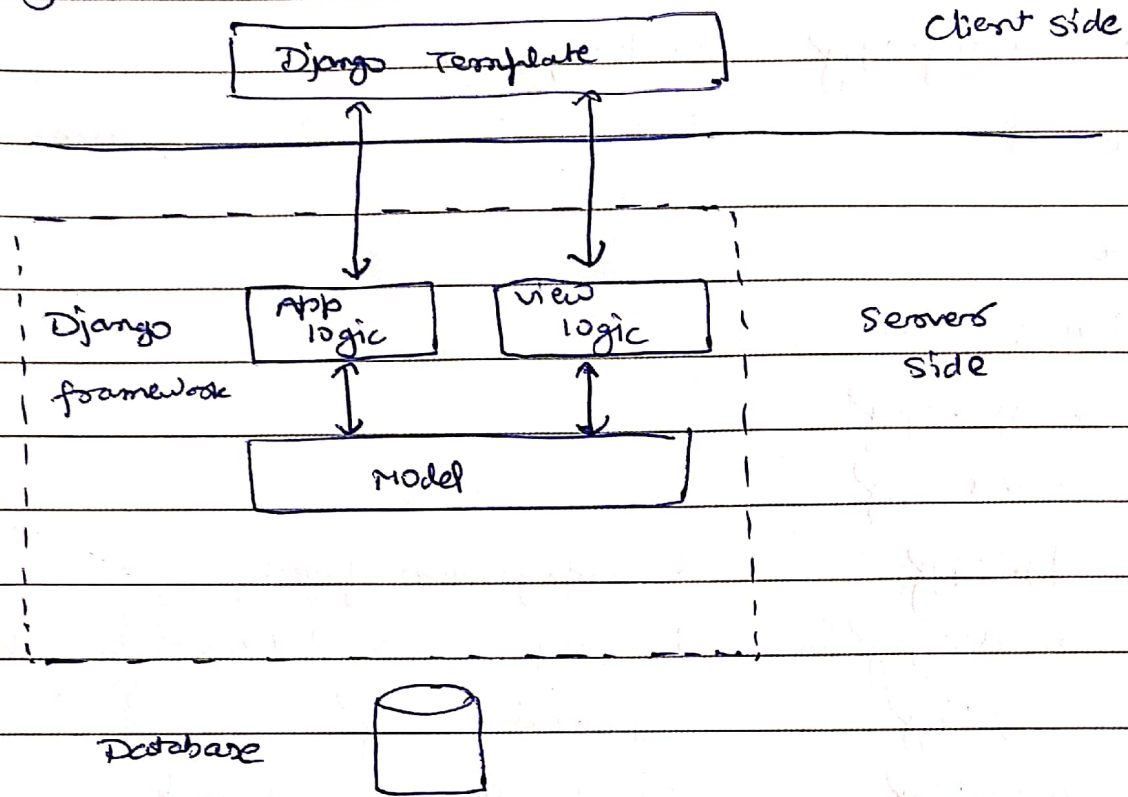 Client side
Django Template
Django
framework
App
logic
view
logic
Server
side
Model
Database